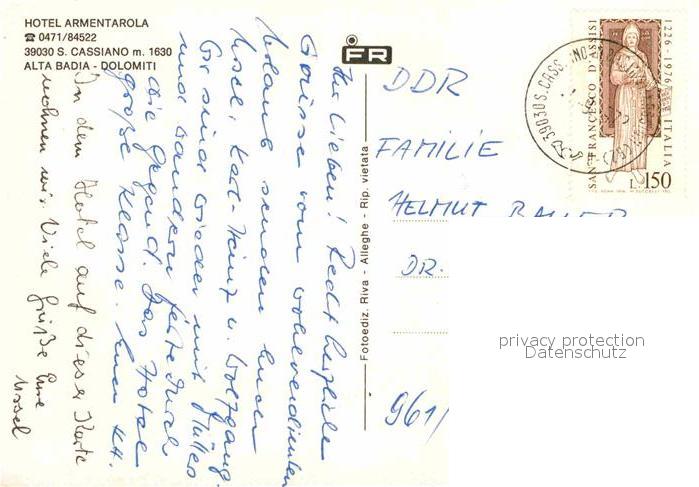 HOTEL ARMENTAROLA
☎ 0471/84522
39030 S. CASSIANO m. 1630
ALTA BADIA - DOLOMITI
FR
Fotoediz. Riva - Alleghe - Rip. vietata
Ihr Lieben! Recht herzliche
Grüsse vom wohlverdienten
Urlaub senden Euch
Karl-Heinz u. Wolfgang.
Wir sind wieder mit
und wandern durch
die Gegend. Das Hotel
große Klasse. Euer KH.
In dem Hotel auf dieser Karte
wohnen wir. Viele Grüße Eure
Ursel
DDR
FAMILIE
HELMUT
DR.
961/
SAN FRANCESCO D'ASSISI
1226-1976
ITALIA
L. 150
39030 S. CASS
privacy protection
Datenschutz